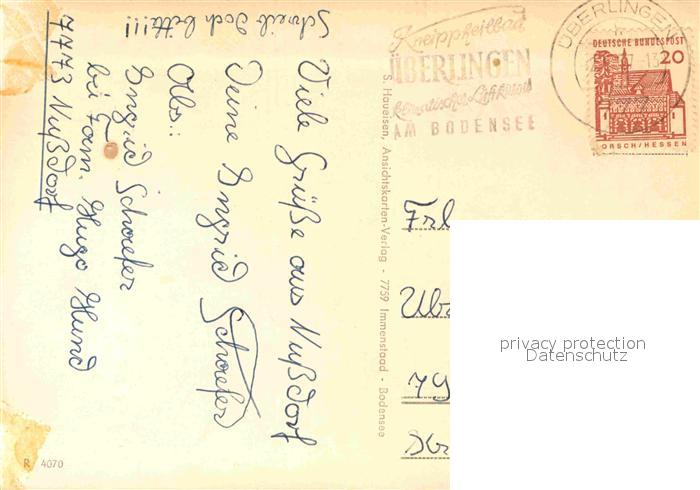 Schreib doch bitte!!!
Viele Grüße aus Nußdorf
Deine Ingrid Schaefer
Abs.:
Ingrid Schaefer
bei Fam. Hugo Hund
7773 Nußdorf
Kneippheilbad
ÜBERLINGEN
AM BODENSEE
ÜBERLINGEN
DEUTSCHE BUNDESPOST
20
ORSCH/HESSEN
S. Haueisen, Ansichtskarten-Verlag - 7759 Immenstaad - Bodensee
Frl
privacy protection
Datenschutz
R 4070